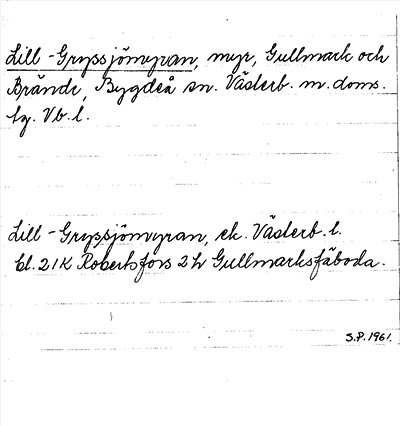 Lill-Grypsjömyran, myr, Gullmark och
Brände, Bygdeå sn. Västerb. m. doms.
tg. Vb. l.
Lill-Grypsjömyran, ek. Västerb. l.
bl. 21K Robertsfors 2h Gullmarksfäboda.
S.P. 1961.